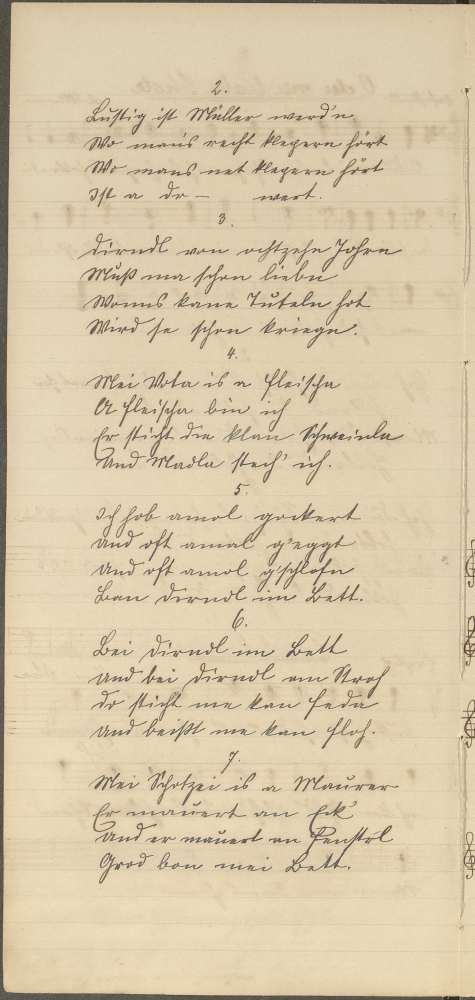 2.
Lustig ist Müller werd'n
Wo man's recht kleppern hört
Wo mans net kleppern hört
Ist a do — wert.
3.
Dirndl von ochtzehn Johrn
Muß ma schon liebn
Wonns kane Tuteln hot
Wird se schon kriegn.
4.
Mei Vota is a Fleischa
A Fleischa bin ich
Er sticht die klan Schweinla
Und Madla stech' ich.
5.
Ich hob amol gockert
Und oft amal g'eggt
Und oft amol g'schlofn
Ban Dirndl im Bett.
6.
Bei Dirndl im Bett
Und bei Dirndl am Stroh
Do sticht me kan Feda
Und beißt me kan Floh.
7.
Mei Schotzei is a Maurer
Er mauert an Eck'
Und er mauert an Fenst'rl
Grod bon mei Bett.